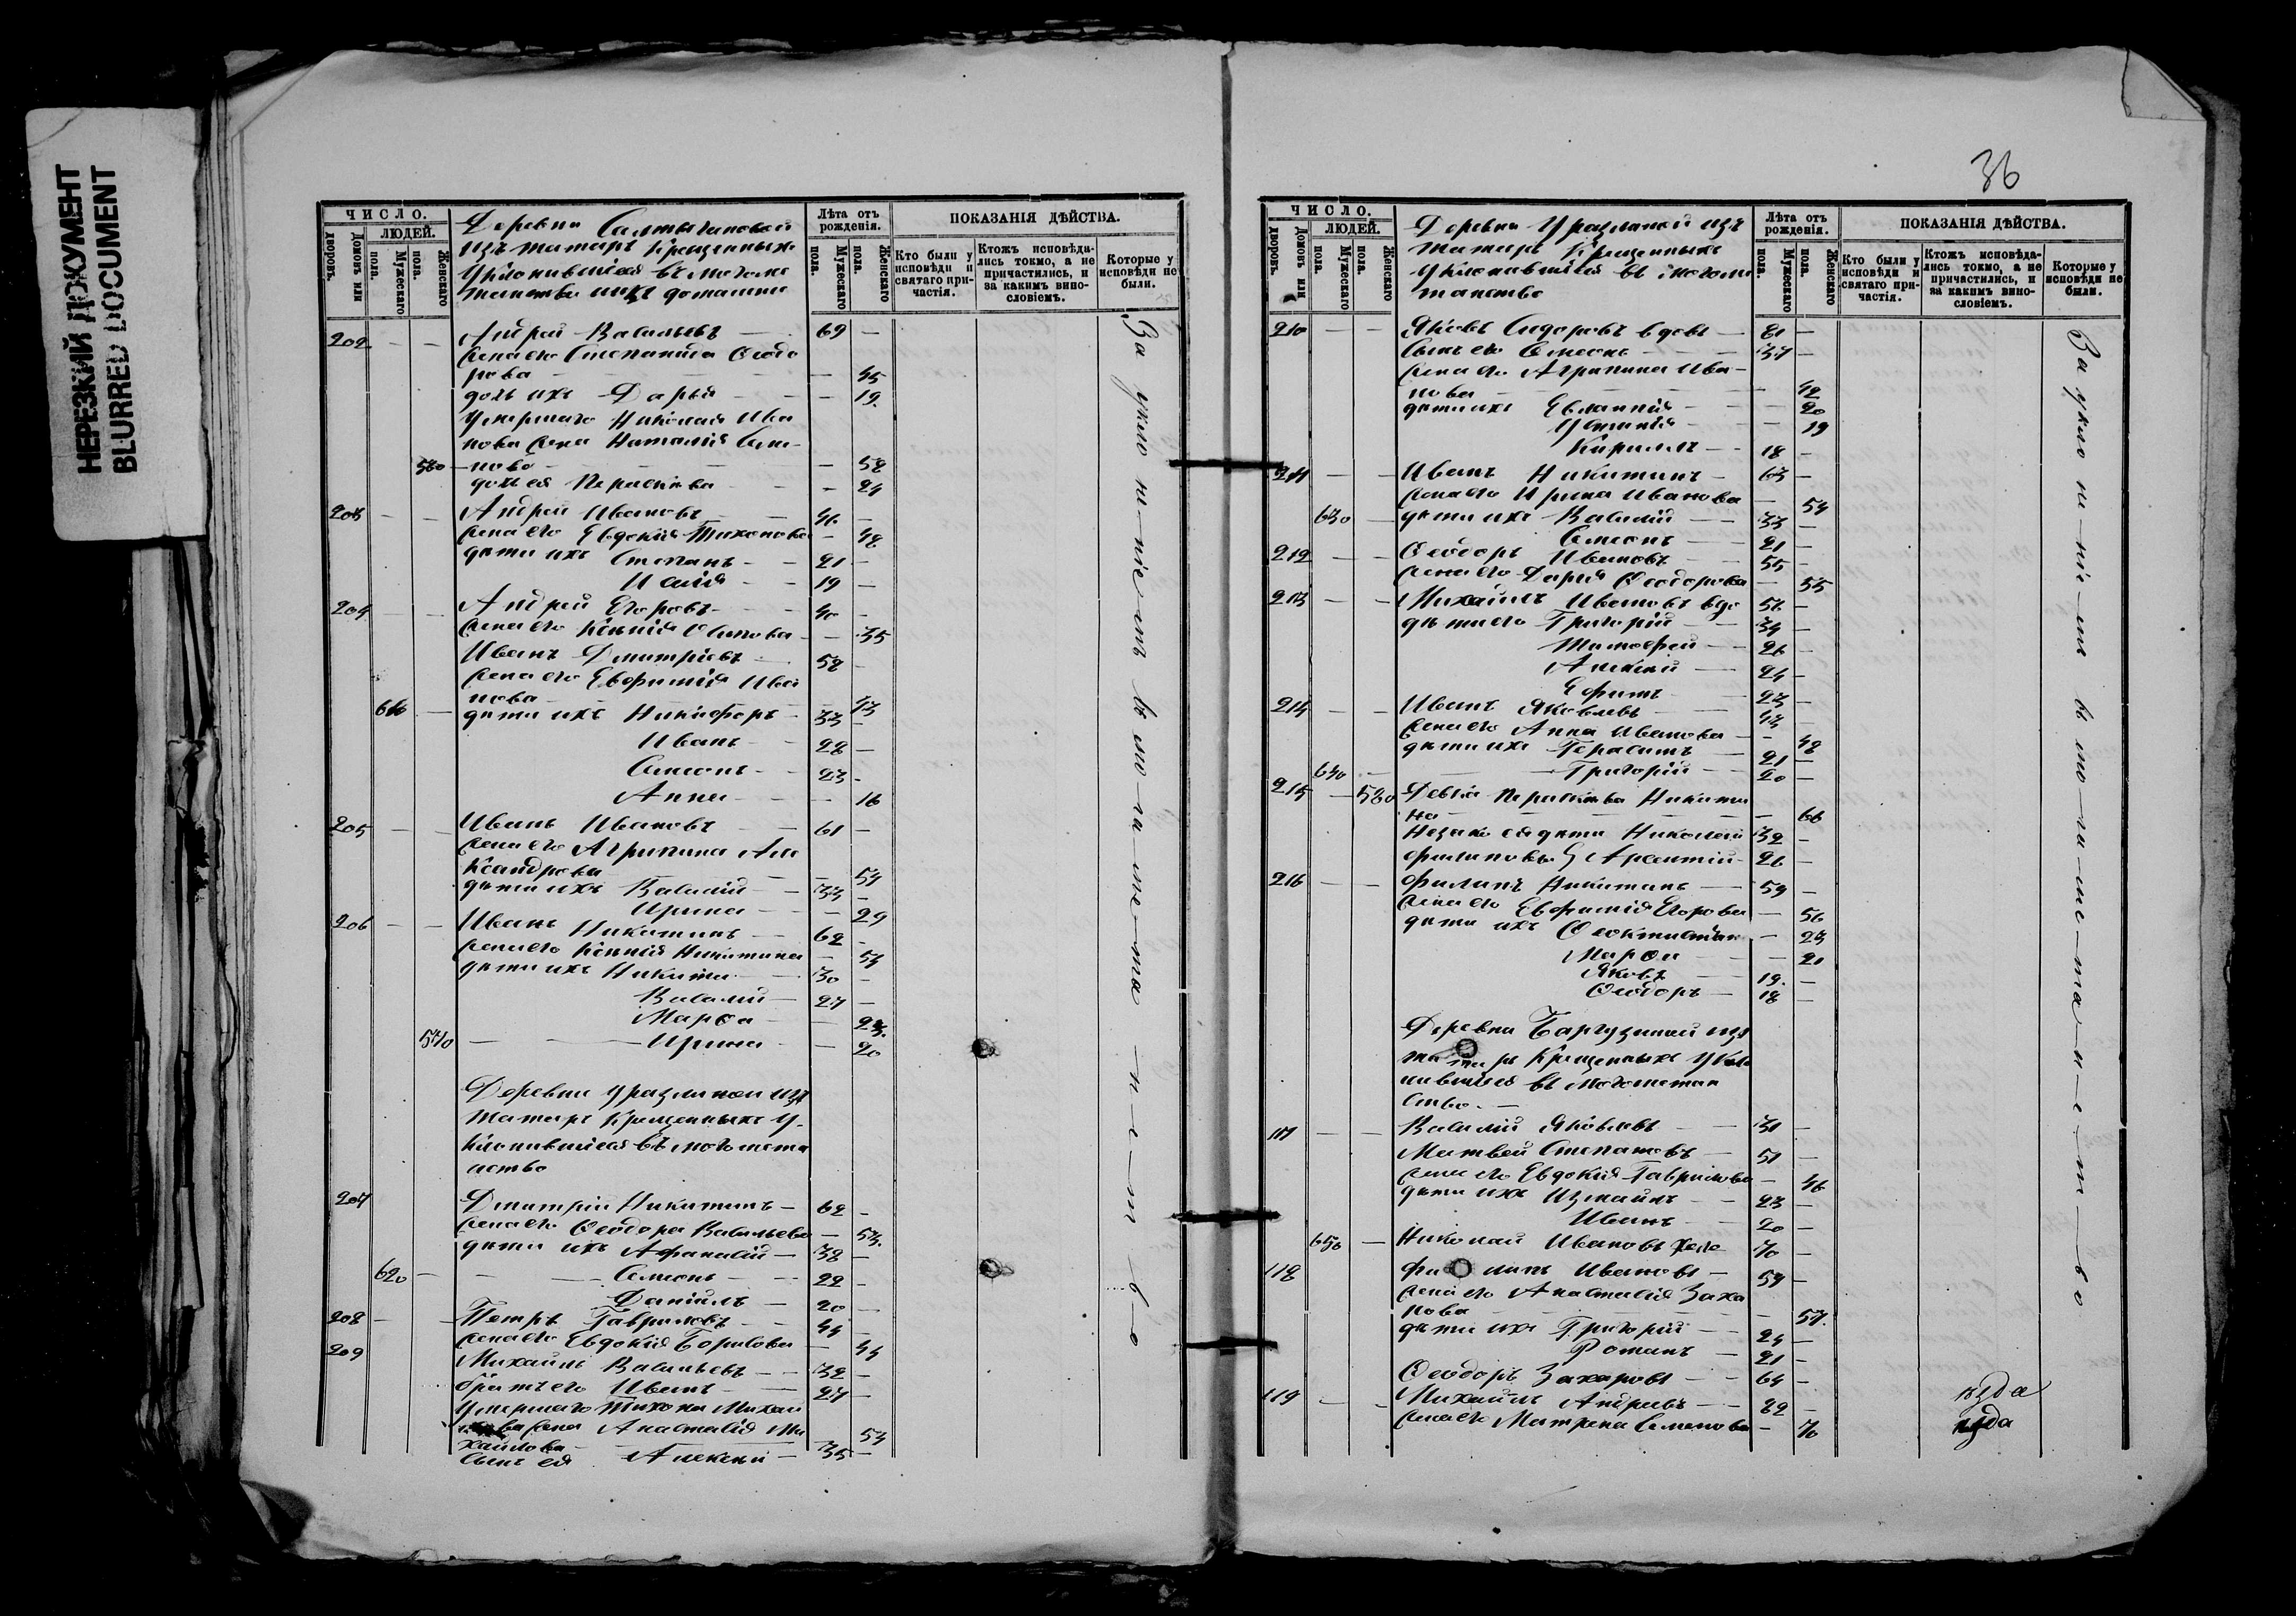 НЕРЕЗКИЙ ДОКУМЕНТ
BLURRED DOCUMENT
ЧИСЛО.
Домовъ или дворовъ.
ЛЮДЕЙ.
Мужескаго пола.
Женскаго пола.
Деревни
изъ татаръ крещенныхъ
уклонившіеся въ магоме
танство ихъ домашни
Лѣта отъ рожденія.
Мужескаго пола.
Женскаго пола.
ПОКАЗАНІЯ ДѢЙСТВА.
Кто были у исповѣди и святаго причастія.
Ктожъ исповѣдались токмо, а не причастились, и за какимъ винословіемъ.
Которые у исповѣди не были.
202 Андрей Васильевъ 69
жена его Степанида Ѳеодо
рова 45
дочь ихъ Дарья 19.
Умершаго Николая Ива
нова жена Наталія Симо
580 нова 52
дочь ея Параскева 24
203 Андрей Ивановъ 46
жена его Евдокія Тихонова 42
дѣти ихъ Степанъ 21
Исаія 19
204 Андрей Егоровъ 40
жена его Ксенія Осипова 35
Иванъ Дмитріевъ 52
жена его Евфимія Ива
нова 43
610 дѣти ихъ Никифоръ 33
Иванъ 22
Симеонъ 23
Анна 16
205 Иванъ Ивановъ 61
жена его Агрипина Але
ксандрова 54
дѣти ихъ Василій 33
Ирина 29
206 Иванъ Никитинъ 62
жена его Ксенія Никитина 54
дѣти ихъ Никита 30
Василій 27
Марѳа 23.
570 Ирина 20
Деревни Уразлиной изъ
татаръ крещенныхъ у-
клонившіеся въ магомета
нство
207 Дмитрій Никитинъ 62
жена его Ѳеодора Васильева 53.
дѣти ихъ Афанасій 32
620 Симеонъ 22
Даніилъ 20
208 Петръ Гавриловъ 44
жена его Евдокія Борисова 44
209 Михаилъ Васильевъ 32
братъ его Иванъ 27
Умершаго Тихона Михай
лова жена Анастасія Ми
хайлова 54
сынъ ея Алексѣй 35
За уклоненіемъ въ магометанство
36
ЧИСЛО.
Домовъ или дворовъ.
ЛЮДЕЙ.
Мужескаго пола.
Женскаго пола.
Деревни Уразлиной изъ
татаръ крещенныхъ
уклонившіеся въ магоме
танство
Лѣта отъ рожденія.
Мужескаго пола.
Женскаго пола.
ПОКАЗАНІЯ ДѢЙСТВА.
Кто были у исповѣди и святаго причастія.
Ктожъ исповѣдались токмо, а не причастились, и за какимъ винословіемъ.
Которые у исповѣди не были.
210 Яковъ Сидоровъ вдовъ 80
Сынъ его Симеонъ 37
жена его Агрипина Ива-
нова 42
дѣти ихъ Евланпія 20
Устинія 19
Кирилъ 18
211 Иванъ Никитинъ 63
жена его Ирина Иванова 54
630 дѣти ихъ Василій 33
Симеонъ 21
212 Ѳеодоръ Ивановъ 55
жена его Дарія Ѳеодорова 55
213 Михаилъ Ивановъ вдо 56
дѣти его Григорій 34
Тимофей 26
Алексѣй 24
Ефимъ 23
214 Иванъ Яковлевъ 43
жена его Анна Иванова 42
дѣти ихъ Герасимъ 21
640 Григорій 20
215 580 Девка Параскева Никити
на 66
Незако ея дѣти Николай 32
Филиповъ Арсентій 26
216 Филипъ Никитинъ 54
жена его Евфимія Егорова 56
дѣти ихъ Ѳеоктиста 23
Марѳа 21
Яковъ 19.
Ѳеодоръ 18
Деревни Баргузиной изъ
татаръ крещенныхъ укло
нившіеся въ магометан
ство.
117 Василій Яковлевъ 31
Матвей Степановъ 51
жена его Евдокія Гаврилова 46
дѣти ихъ Измаилъ 23
Иванъ 20
650 Николай Ивановъ 70
118 Филипъ Ивановъ 54
жена его Анастасія Заха
рова 57.
дѣти ихъ Григорій 24
Романъ 21
Ѳеодоръ Захаровъ 64
119 Михаилъ Андреевъ 82
жена его Матрена Семенова 70
За уклоненіемъ въ магометанство